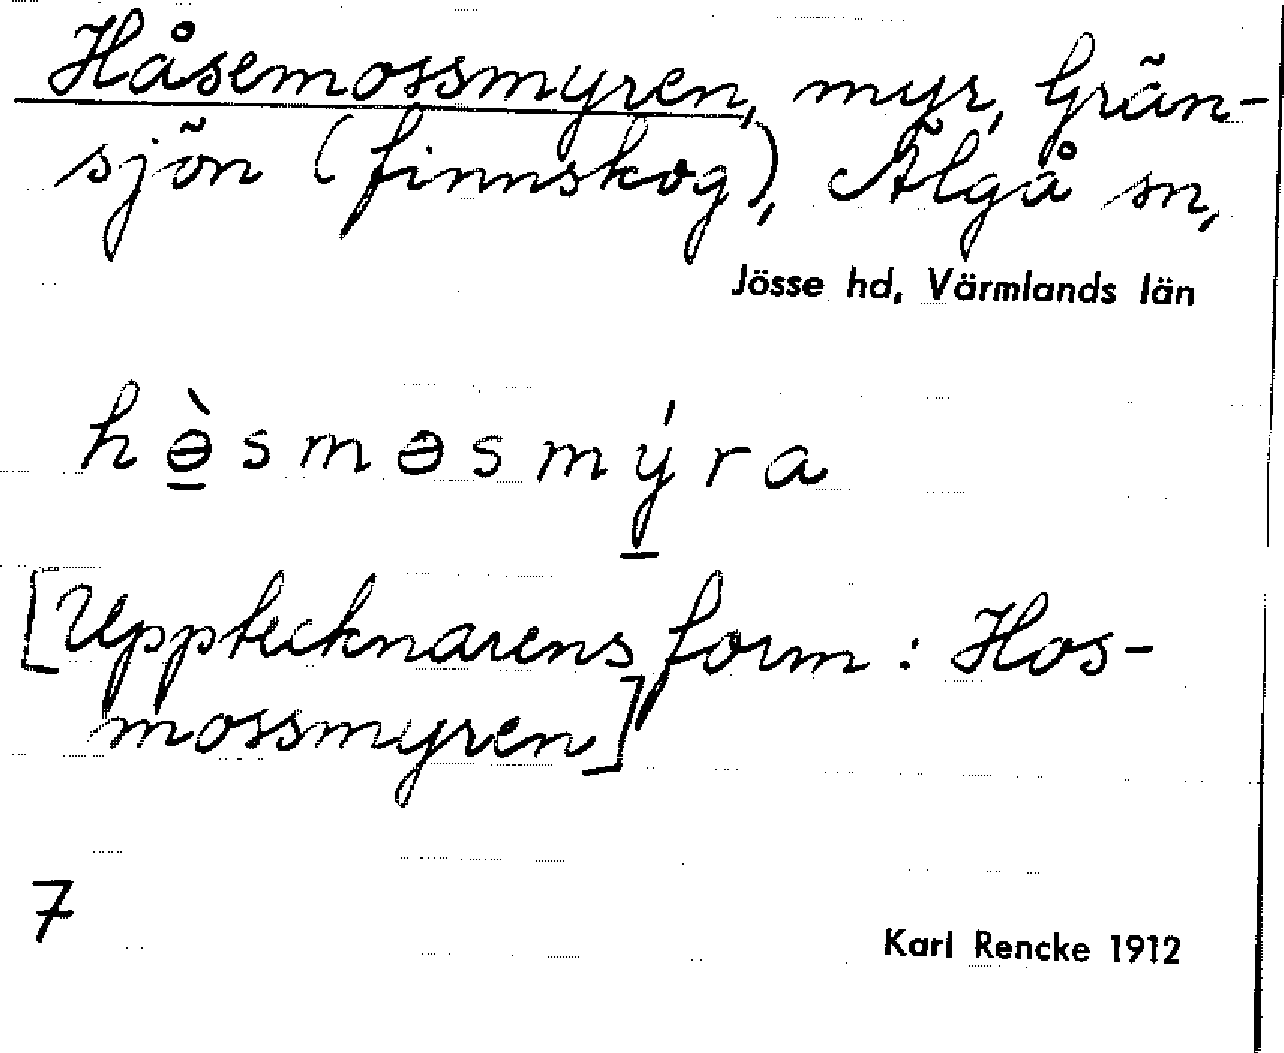 Håsemossmyren, myr, Grän-
sjön (finnskog), Älgå sn,
Jösse hd, Värmlands län
hə̱̀sməsmý̱ra
[Upptecknarens form: Hos-
mossmyren]
7
Karl Rencke 1912